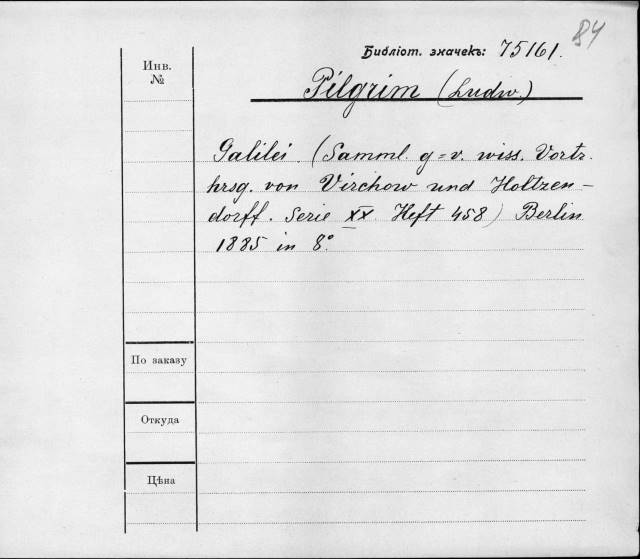 84
Библіот. значекъ: 75161.
Инв.
№
Pilgrim (Ludw.)
Galilei. (Samml. g=v. wiss. Vortr.
hrsg. von Virchow und Holtzen-
dorff. Serie XX. Heft 458) Berlin
1885 in 8°.
По заказу
Откуда
Цѣна